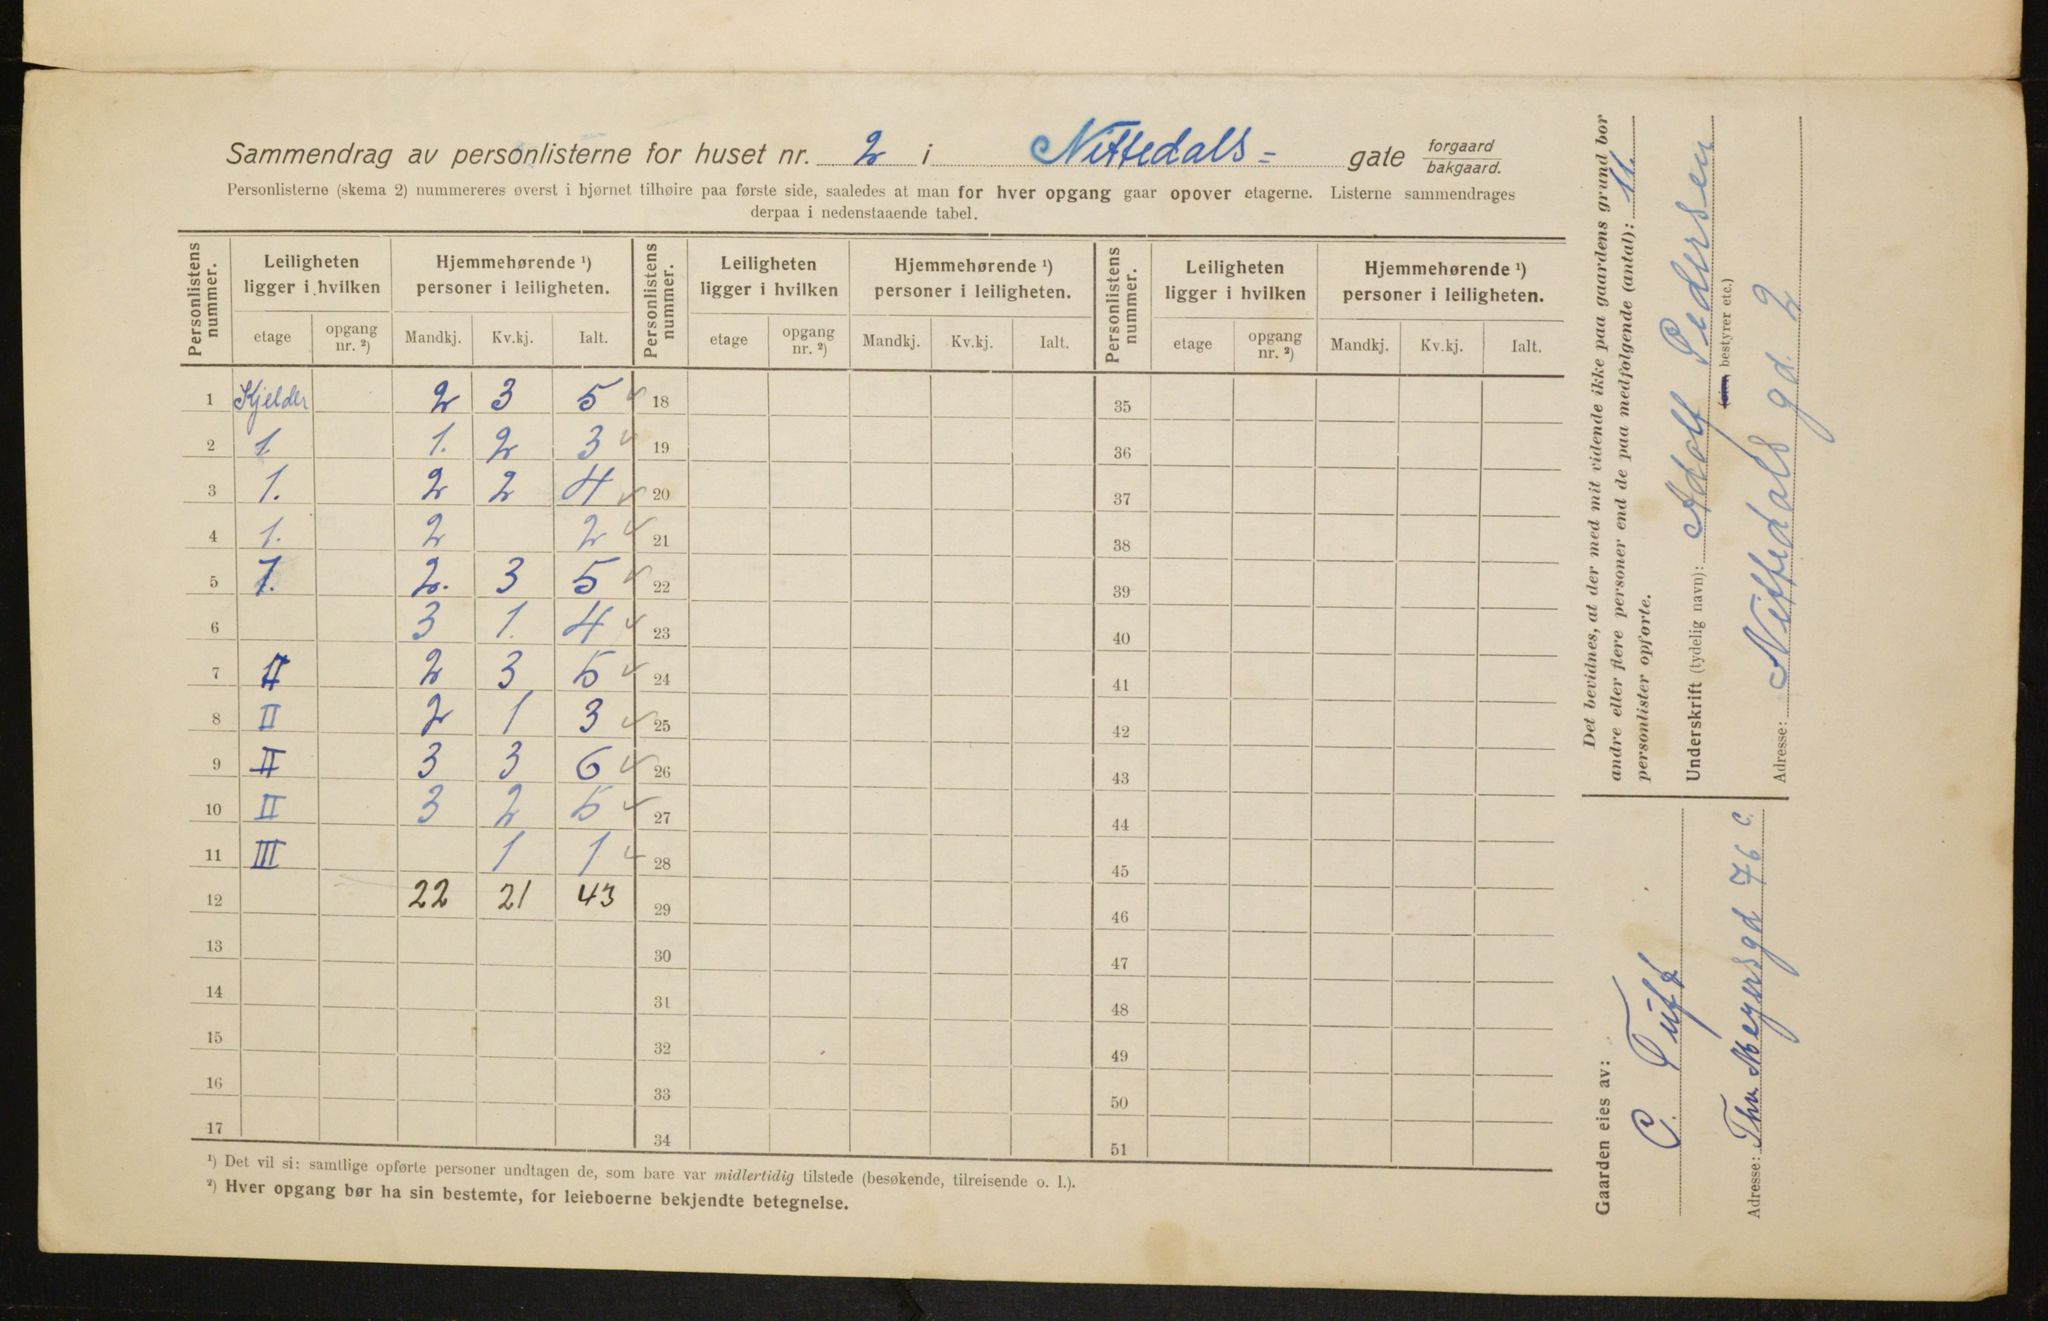 Sammendrag av personlisterne for huset nr. 2 i Nittedals- gate forgaard bakgaard.
Personlisterne (skema 2) nummereres øverst i hjørnet tilhøire paa første side, saaledes at man for hver opgang gaar opover etagerne. Listerne sammendrages
derpaa i nedenstaaende tabel.
Personlistens nummer. Leiligheten ligger i hvilken Hjemmehørende ¹) personer i leiligheten. Personlistens nummer. Leiligheten ligger i hvilken Hjemmehørende ¹) personer i leiligheten. Personlistens nummer. Leiligheten ligger i hvilken Hjemmehørende ¹) personer i leiligheten.
etage opgang nr. ²) Mandkj. Kv.kj. Ialt. etage opgang nr. ²) Mandkj. Kv.kj. Ialt. etage opgang nr. ²) Mandkj. Kv.kj. Ialt.
1 Kjelder 2 3 5 18 35
2 1. 1. 2 3 19 36
3 1. 2 2 4 20 37
4 1. 2 2 21 38
5 1. 2. 3 5 22 39
6 3 1. 4 23 40
7 II 2 3 5 24 41
8 II 2 1 3 25 42
9 II 3 3 6 26 43
10 II 3 2 5 27 44
11 III 1 1 28 45
12 22 21 43 29 46
13 30 47
14 31 48
15 32 49
16 33 50
17 34 51
¹) Det vil si: samtlige opførte personer undtagen de, som bare var midlertidig tilstede (besøkende, tilreisende o. l.).
²) Hver opgang bør ha sin bestemte, for leieboerne bekjendte betegnelse.
Det bevidnes, at der med mit vidende ikke paa gaardens grund bor
andre eller flere personer end de paa medfølgende (antal): 11.
personlister opførte.
Underskrift (tydelig navn): Adolf Pedersen
(eier, bestyrer etc.)
Adresse: Nittedals gd. 2
Gaarden eies av:
C. Tuft
Adresse: Thv Meyersgd 76 c.